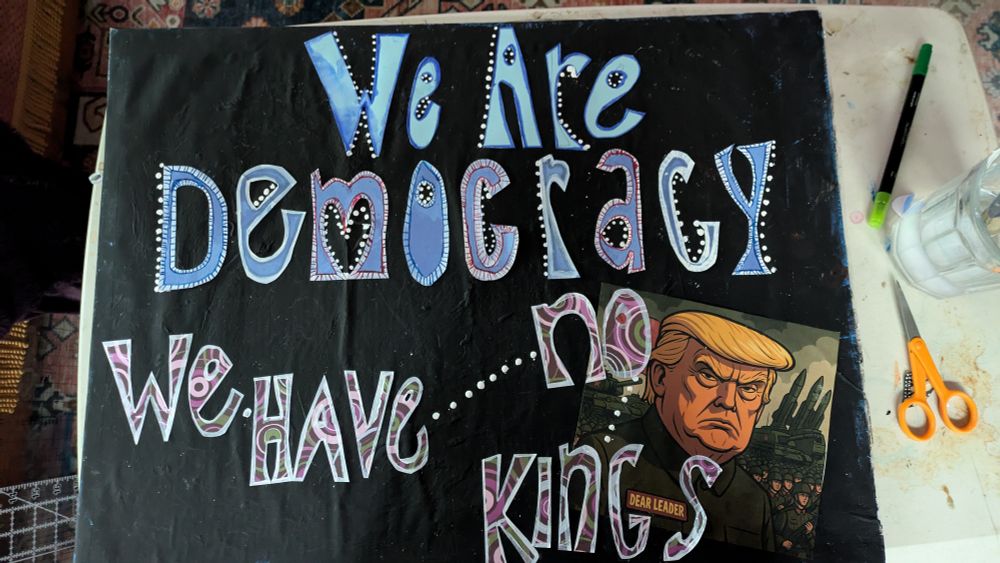 We Are
Democracy
We HAVe no
KInGS
DEAR LEADER